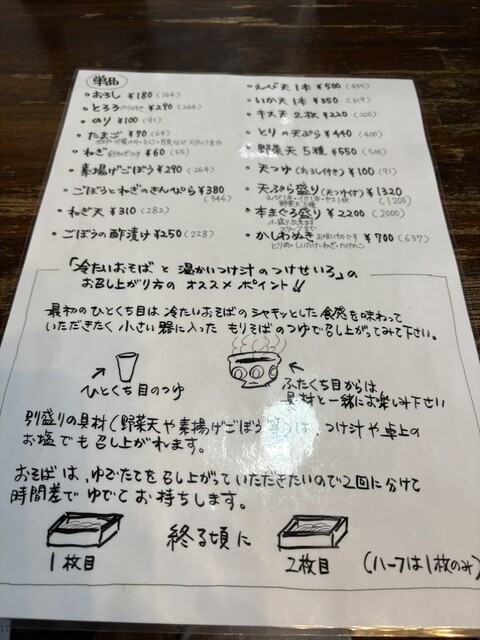 単品
・おろし ¥180 (164)
・とろろ のり付き ¥290 (264)
・のり ¥100 (91)
・たまご ¥70 (64)
・ねぎ ¥60 (55)
・素揚げごぼう ¥290 (264)
・ごぼうとねぎのきんぴら ¥380
(346)
・ねぎ天 ¥310 (282)
・ごぼうの酢漬け ¥250 (228)
・えび天 1本 ¥500 (455)
・いか天 1本 ¥350 (319)
・キス天 2枚 ¥220 (200)
・とりの天ぷら ¥440 (400)
・野菜天 5種 ¥550 (500)
・天つゆ (おろし付き) ¥100 (91)
・天ぷら盛り (天つゆ付) ¥1320
えび1本・イカ1本・キス1枚 (1200)
野菜天3種
・本まぐろ盛り ¥2200 (2000)
・かしわぬき お吸いものです ¥700 (637)
とり肉・しいたけ・ねぎ・たけのこ
「冷たいおそばと温かいつけ汁のつけせいろ」の
お召し上がり方のオススメポイント!!
最初のひとくち目は冷たいおそばのシャキッとした食感を味わって
いただきたく小さい器に入ったもりそばのつゆで召し上がってみて下さい。
ひとくち目のつゆ
ふたくち目からは
具材と一緒にお楽しみ下さい
別盛りの具材(野菜天や素揚げごぼう等)は、つけ汁や卓上の
お塩でも召し上がれます。
おそばは、ゆでたてを召し上がっていただきたいので2回に分けて
時間差でゆでてお持ちします。
終る頃に
1枚目
2枚目
(ハーフは1枚のみ)